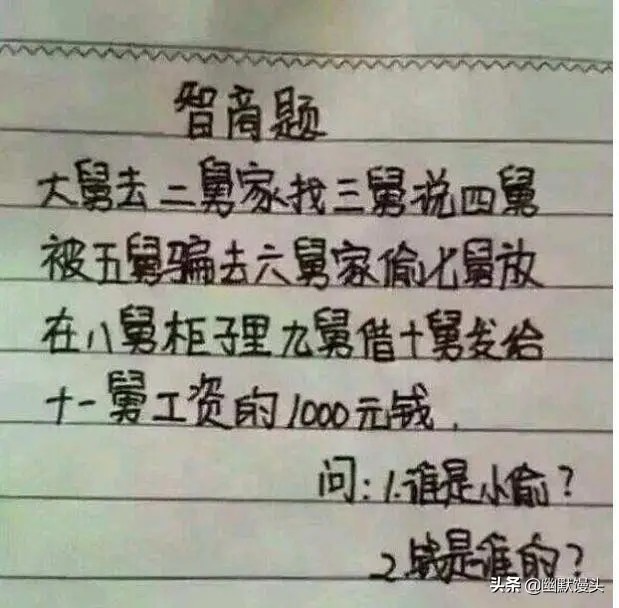 智商题
大舅去二舅家找三舅说四舅
被五舅骗去六舅家偷七舅放
在八舅柜子里九舅借十舅发给
十一舅工资的1000元钱.
问:1.谁是小偷?
2.钱是谁的?
头条 @幽默馒头